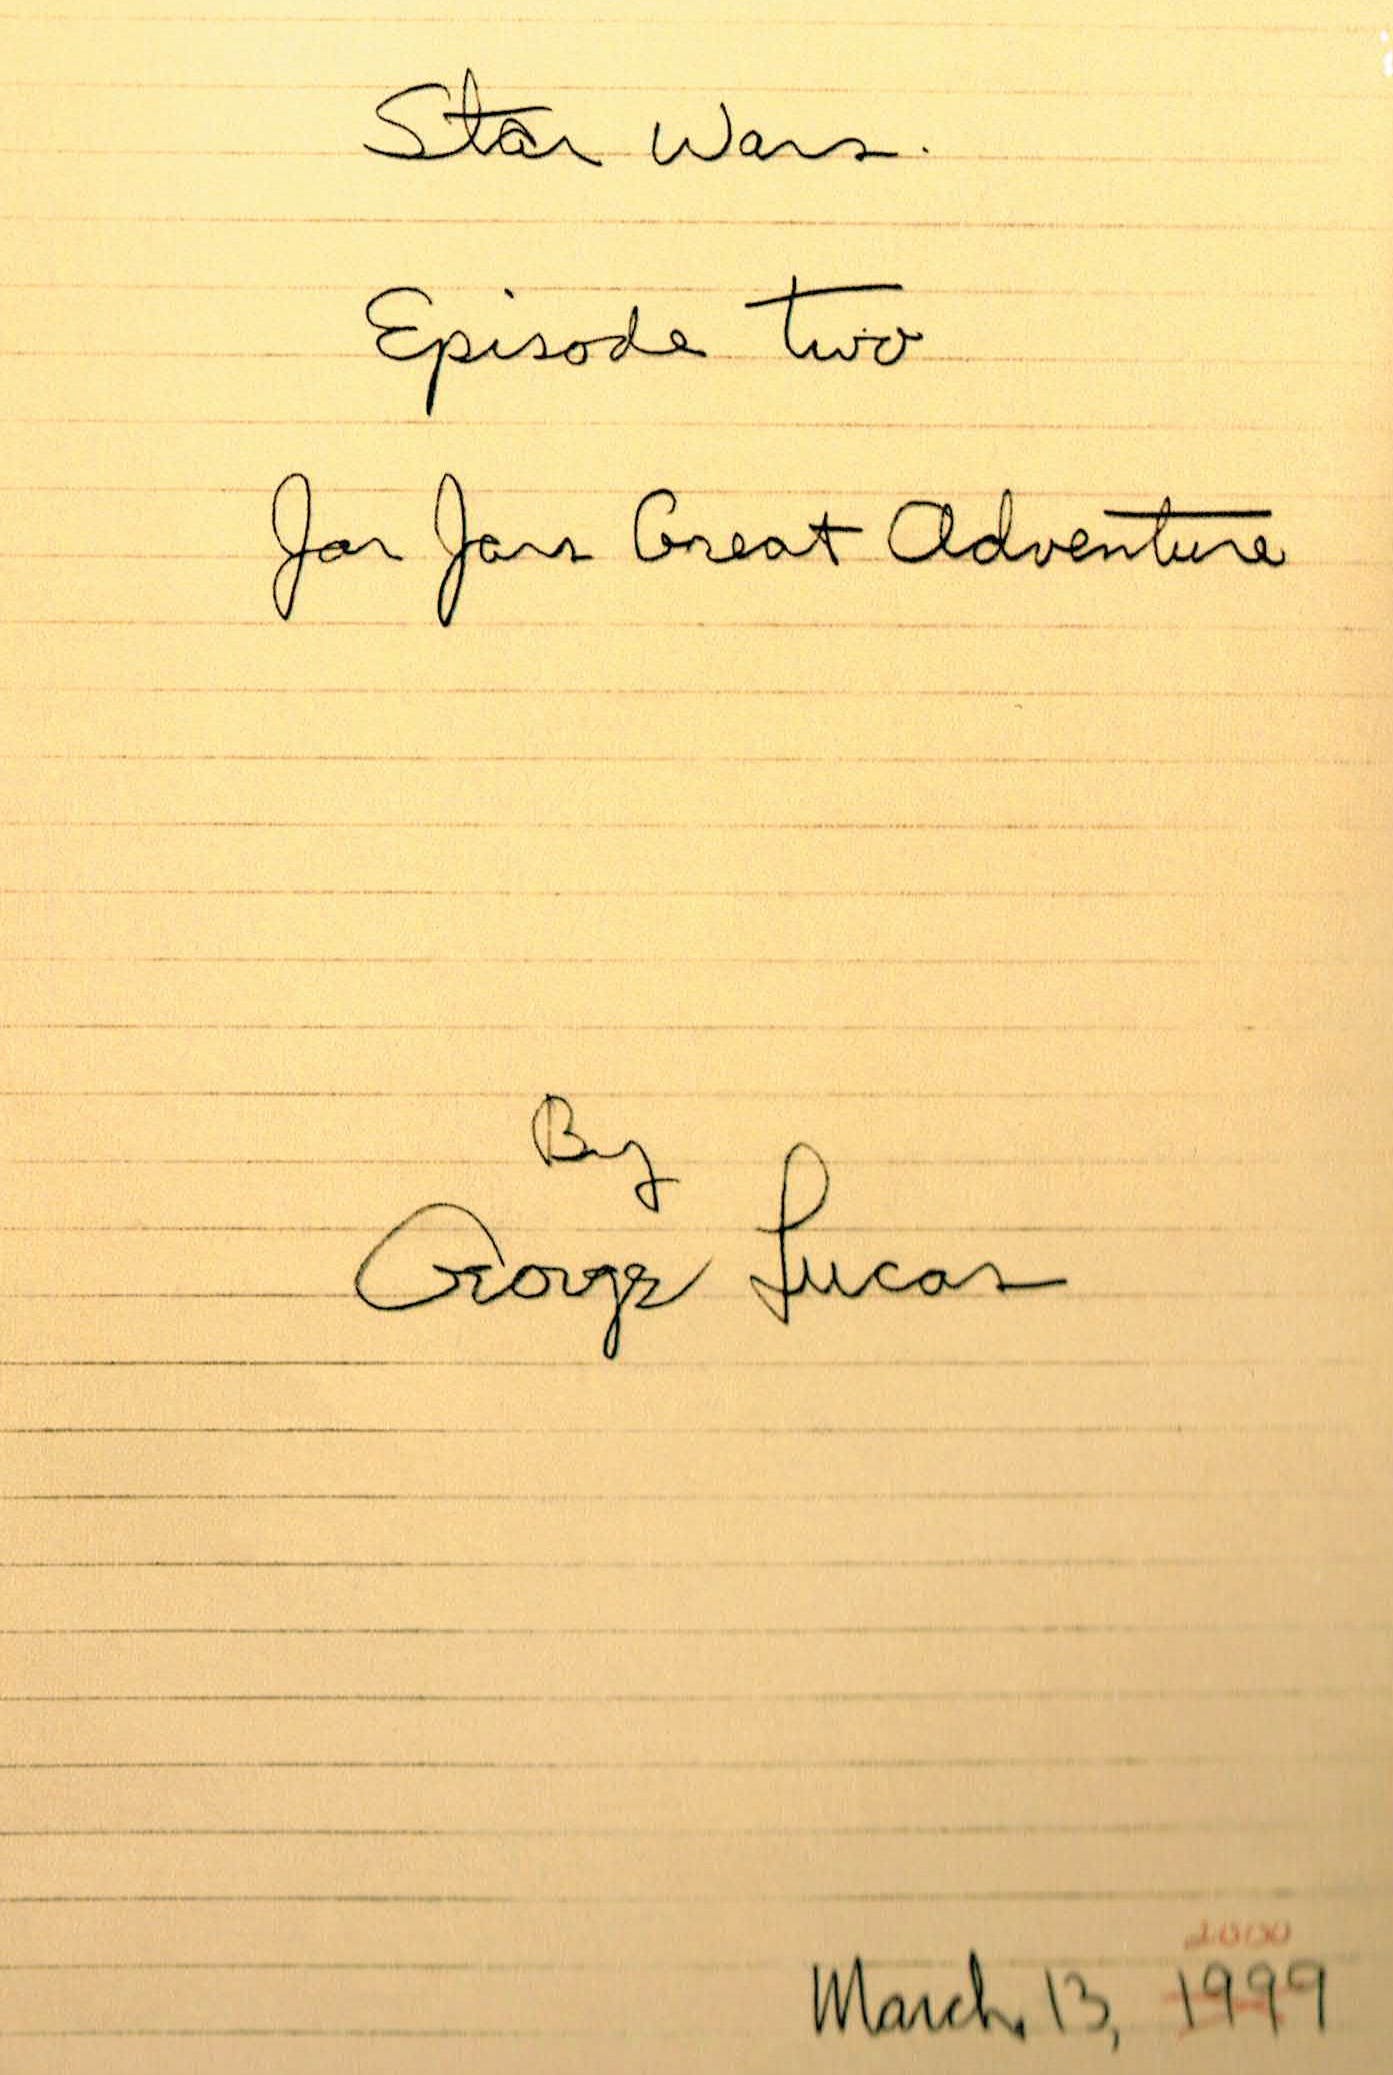 Star Wars.
Episode two
Jar Jars Great Adventure
By
George Lucas
2000
March, 13, 1999